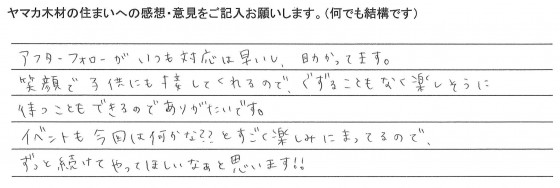 ヤマカ木材の住まいへの感想・意見をご記入お願いします。(何でも結構です)
アフターフォローがいつも対応は早いし、助かってます。
笑顔で子供にも接してくれるので、ぐずることもなく楽しそうに
待つこともできるのでありがたいです。
イベントも今回は何かな??とすごく楽しみにまってるので、
ずっと続けてやってほしいなぁと思います!!